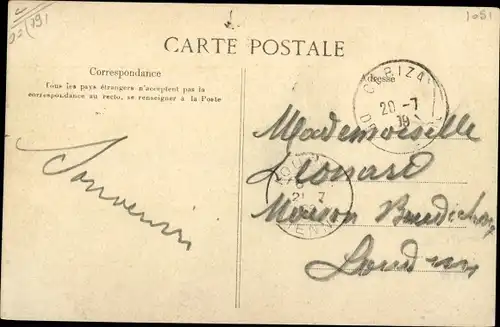 (79)
1051
CARTE POSTALE
Correspondance
Tous les pays étrangers n'acceptent pas la
correspondance au recto, se renseigner à la Poste
Adresse
20-7
19
Mademoiselle
Léonard
Maison
Loudun
21-7
Souvenir